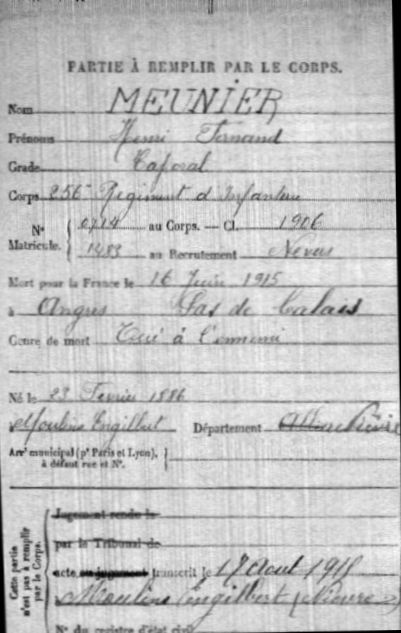 PARTIE À REMPLIR PAR LE CORPS.
Nom MEUNIER
Prénoms Henri Fernand
Grade Caporal
Corps 256e Régiment d'Infanterie
N° 0714 au Corps. — Cl. 1906
Matricule. 1483 au Recrutement Nevers
Mort pour la France le 16 Juin 1915
à Angres Pas de Calais
Genre de mort Tué à l'ennemi
Né le 23 Février 1886
Moulins Engilbert Département Nièvre
Arrt municipal (pr Paris et Lyon),
à défaut rue et N°.
Cette partie
n'est pas à remplir
par le Corps.
Jugement rendu le
par le Tribunal de
acte ou jugement transcrit le 17 Août 1915
Moulins Engilbert (Nièvre)
N° du registre d'état civil